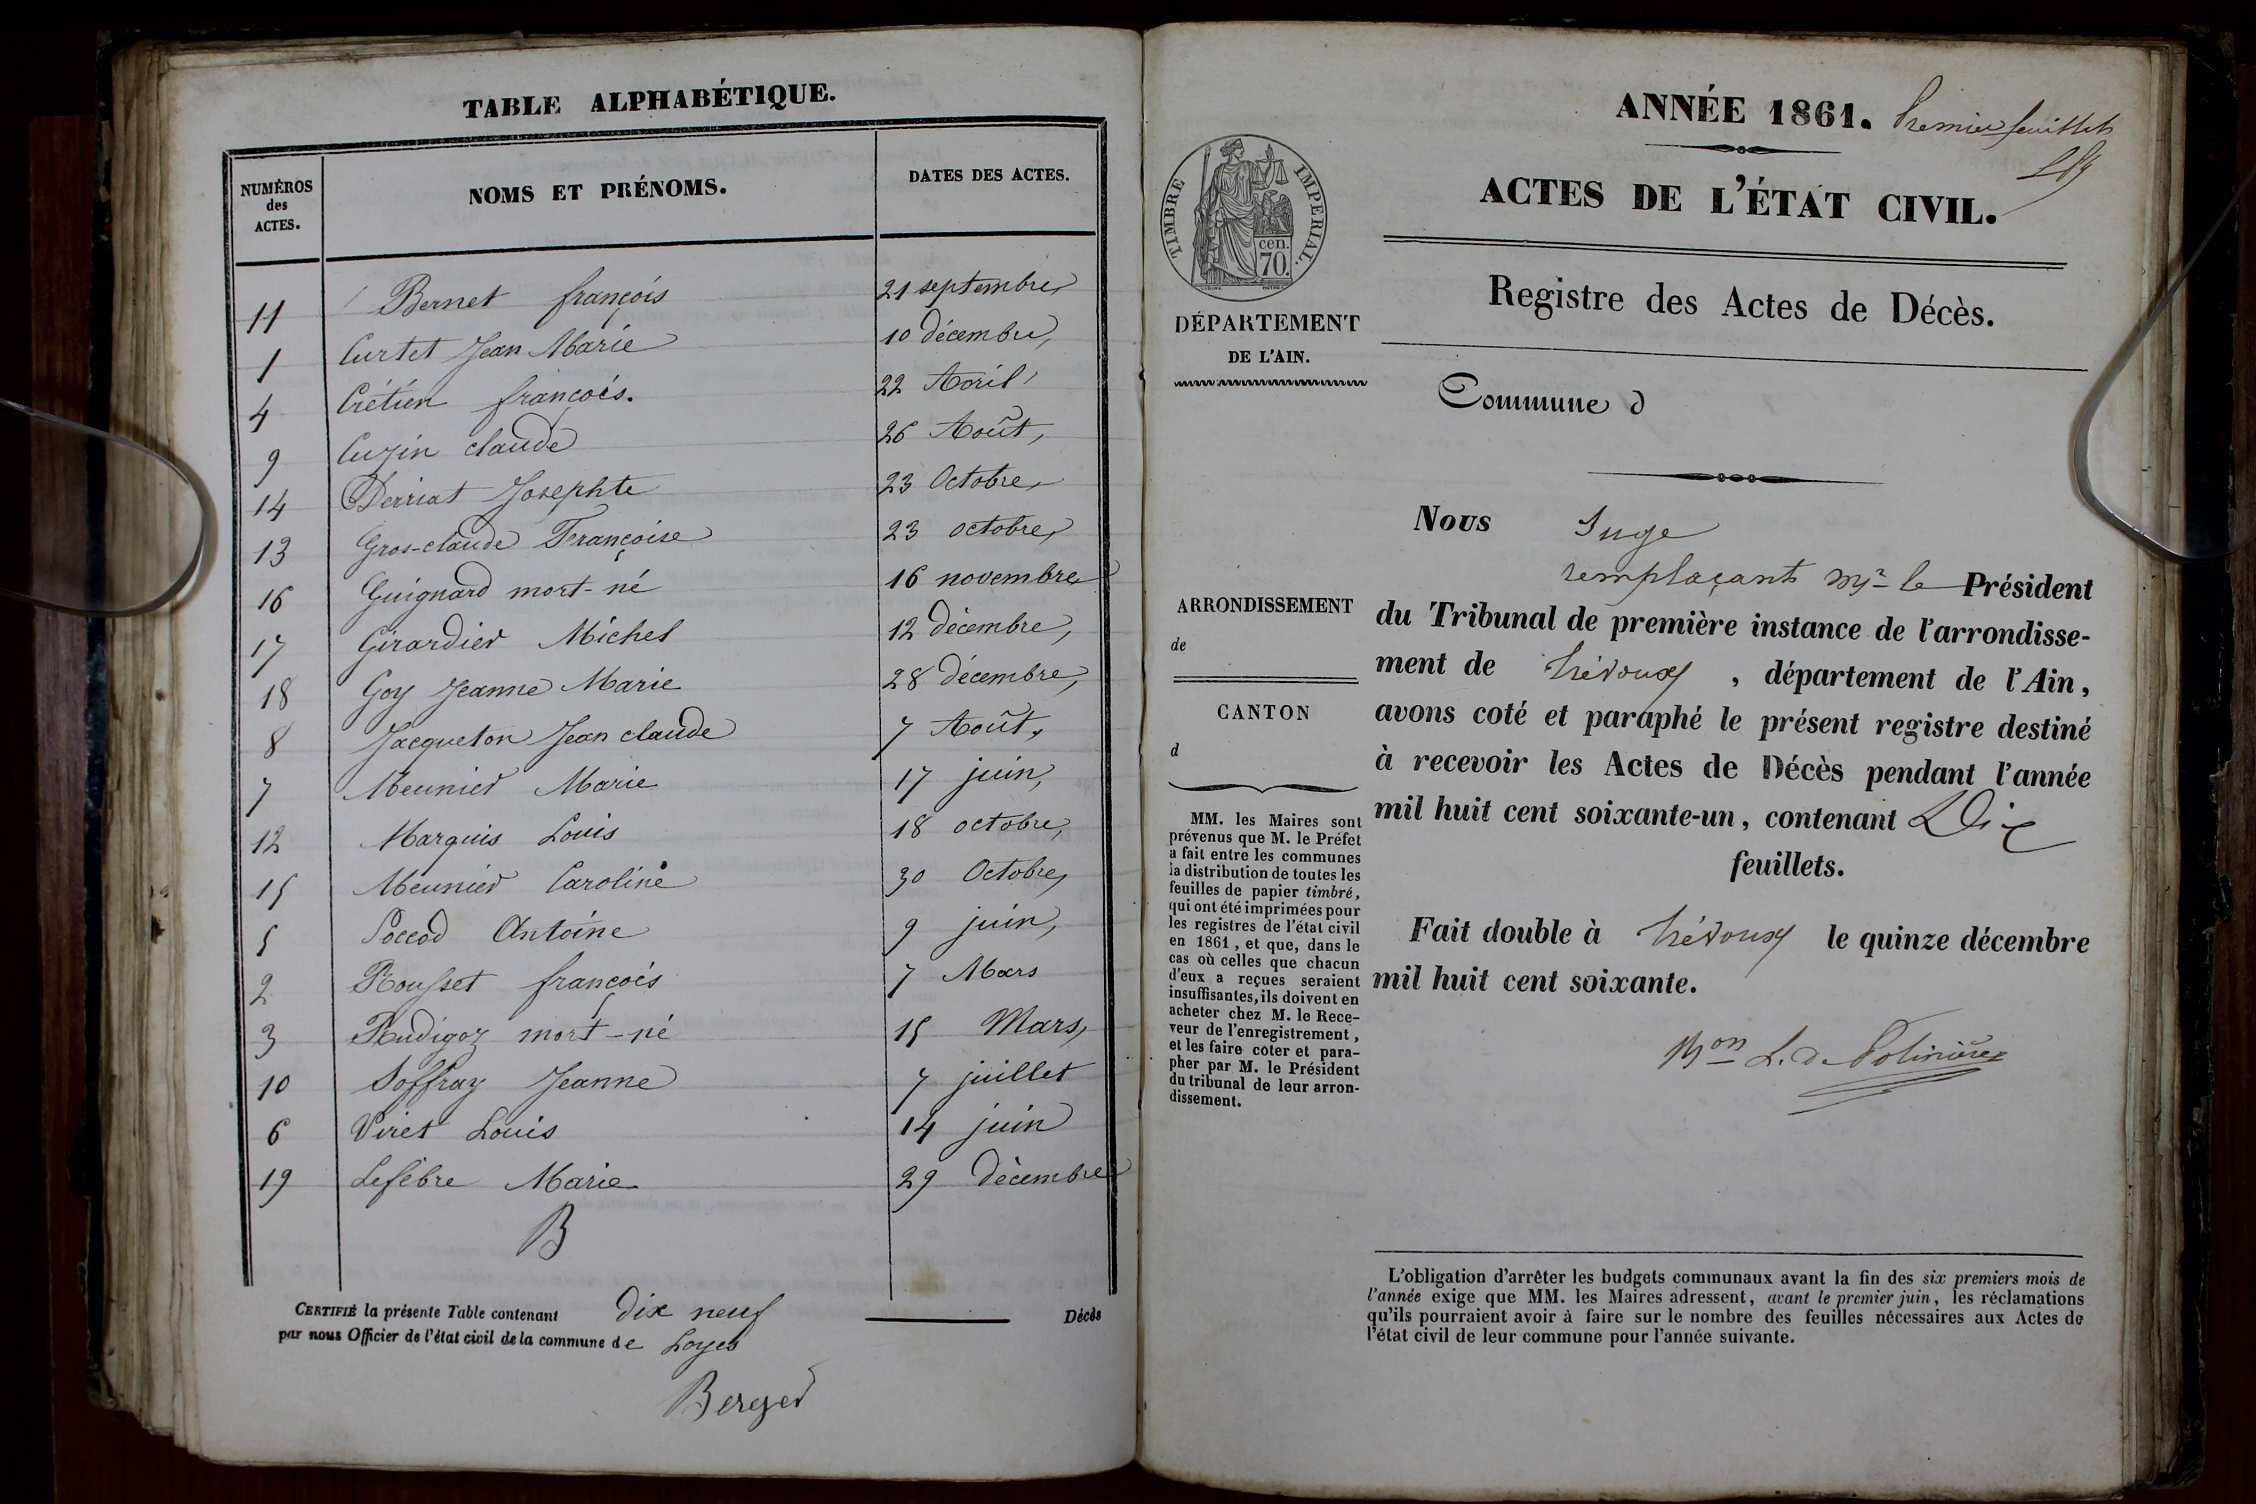 TABLE ALPHABÉTIQUE.
NUMÉROS des ACTES. NOMS ET PRÉNOMS. DATES DES ACTES.
11 Bernet françois 21 septembre
1 Curtet Jean Marie 10 décembre,
4 Crétien françois. 22 Avril
9 Cuzin claude 26 Août,
14 Derriat Josephte 23 Octobre
13 Gros-claude Françoise 23 octobre,
16 Guignard mort-né 16 novembre
17 Girardier Michel 12 décembre,
18 Goy Jeanne Marie 28 décembre,
8 Jacqueton Jean claude 7 Août,
7 Meunier Marie 17 juin,
12 Marquis Louis 18 octobre,
15 Meunier Caroline 30 Octobre,
5 Poccod Antoine 9 juin,
2 Rousset françois 7 Mars
3 Rudigoz mort-né 15 Mars,
10 Soffray Jeanne 7 juillet
6 Viret Louis 14 juin
19 Lefèbre Marie 29 décembre
B
CERTIFIÉ la présente Table contenant dix neuf Décès
par nous Officier de l'état civil de la commune de Loyes
Berger
ANNÉE 1861. Premier feuillet
ACTES DE L'ÉTAT CIVIL.
TIMBRE IMPERIAL.
cen.
70.
Registre des Actes de Décès.
DÉPARTEMENT
DE L'AIN.
Commune d
Nous Juge
remplaçant Mr le Président
du Tribunal de première instance de l'arrondisse-
ment de Trévoux, département de l'Ain,
avons coté et paraphé le présent registre destiné
à recevoir les Actes de Décès pendant l'année
mil huit cent soixante-un, contenant Dix
feuillets.
Fait double à Trévoux le quinze décembre
mil huit cent soixante.
ARRONDISSEMENT
de
CANTON
d
MM. les Maires sont
prévenus que M. le Préfet
a fait entre les communes
la distribution de toutes les
feuilles de papier timbré,
qui ont été imprimées pour
les registres de l'état civil
en 1861, et que, dans le
cas où celles que chacun
d'eux a reçues seraient
insuffisantes, ils doivent en
acheter chez M. le Rece-
veur de l'enregistrement,
et les faire coter et para-
pher par M. le Président
du tribunal de leur arron-
dissement.
L'obligation d'arrêter les budgets communaux avant la fin des six premiers mois de
l'année exige que MM. les Maires adressent, avant le premier juin, les réclamations
qu'ils pourraient avoir à faire sur le nombre des feuilles nécessaires aux Actes de
l'état civil de leur commune pour l'année suivante.